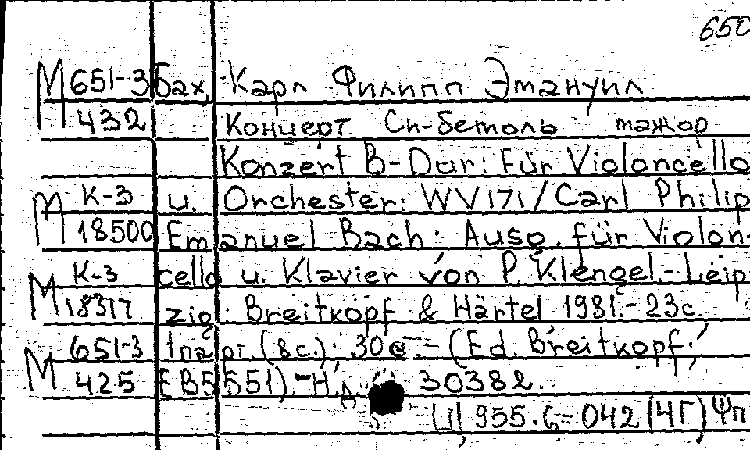 650
М 651-3 Бах, Карл Филипп Эмануил
432 Концерт Си-бемоль мажор
Konzert B-Dur: Für Violoncello
М К-3 u. Orchester: WV 171/Carl Philip
18500 Emanuel Bach: Ausg. für Violon-
М К-3 cello u. Klavier von P. Klengel.-Leip
18317 zig: Breitkopf & Härtel 1981.-23с.
М 651-3 1парт.(8с.); 30 (Ed. Breitkopf;
425 EB5551).-Н.Д. 30382.
Ц 955.6-042(4Г)